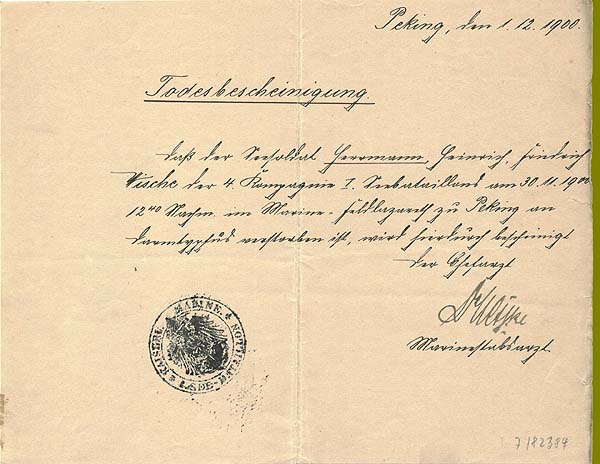 Peking, den 1. 12. 1900.
Todesbescheinigung.
Daß der Seesoldat Herrmann, Heinrich, Friedrich
Wische der 4. Kompagnie I. Seebataillons am 30.11.1900
12⁴⁰ Nachm. im Marine-Feldlazareth zu Peking an
Darmtyphus verstorben ist, wird hierdurch bescheinigt
Der Chefarzt
Dr
Marinestabsarzt.
KAISERL. MARINE.
7/82384